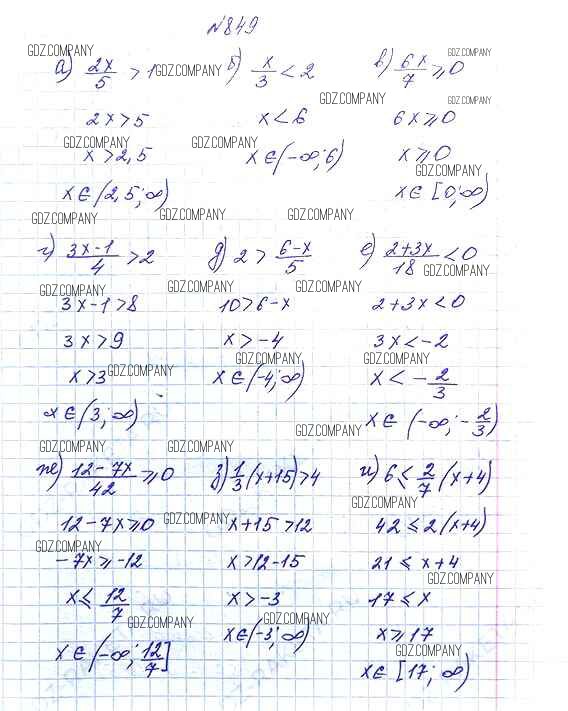 №849
GDZ.COMPANY
а) 2x/5 > 1 GDZ.COMPANY б) x/3 < 2 в) 6x/7 ⩾ 0 GDZ.COMPANY
GDZ.COMPANY GDZ.COMPANY
2x > 5 x < 6 6x ⩾ 0
GDZ.COMPANY GDZ.COMPANY
x > 2,5 x ∈ (-∞; 6) x ⩾ 0
GDZ.COMPANY
x ∈ (2,5; ∞) x ∈ [0; ∞)
GDZ.COMPANY GDZ.COMPANY GDZ.COMPANY
г) (3x-1)/4 > 2 д) 2 > (6-x)/5 е) (2+3x)/18 < 0
GDZ.COMPANY
GDZ.COMPANY GDZ.COMPANY GDZ.COMPANY
3x-1 > 8 10 > 6-x 2+3x < 0
3x > 9 x > -4 3x < -2
GDZ.COMPANY GDZ.COMPANY
x > 3 GDZ.COMPANY x ∈ (-4; ∞) x < -2/3
x ∈ (3; ∞) x ∈ (-∞; -2/3)
GDZ.COMPANY
GDZ.COMPANY GDZ.COMPANY
ж) (12-7x)/42 ⩾ 0 з) 1/3 (x+15) > 4 и) 6 ⩽ 2/7 (x+4)
GDZ.COMPANY
12-7x ⩾ 0 GDZ.COMPANY x+15 > 12 42 ⩽ 2(x+4)
GDZ.COMPANY
-7x ⩾ -12 x > 12-15 21 ⩽ x+4
GDZ.COMPANY
x ⩽ 12/7 x > -3 17 ⩽ x
GDZ.COMPANY GDZ.COMPANY
x ∈ (-3; ∞) x ⩾ 17
GDZ.COMPANY
x ∈ (-∞; 12/7] x ∈ [17; ∞)